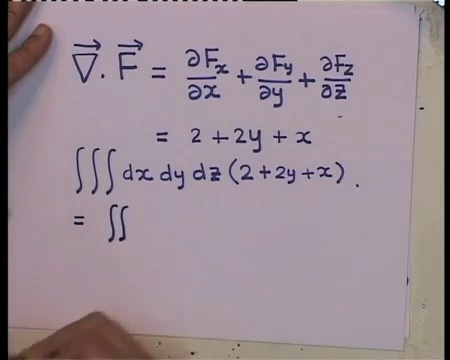 ∇⃗ . F⃗ = ∂Fx/∂x + ∂Fy/∂y + ∂Fz/∂z
= 2 + 2y + x
∫∫∫ dx dy dz (2 + 2y + x) .
= ∫∫